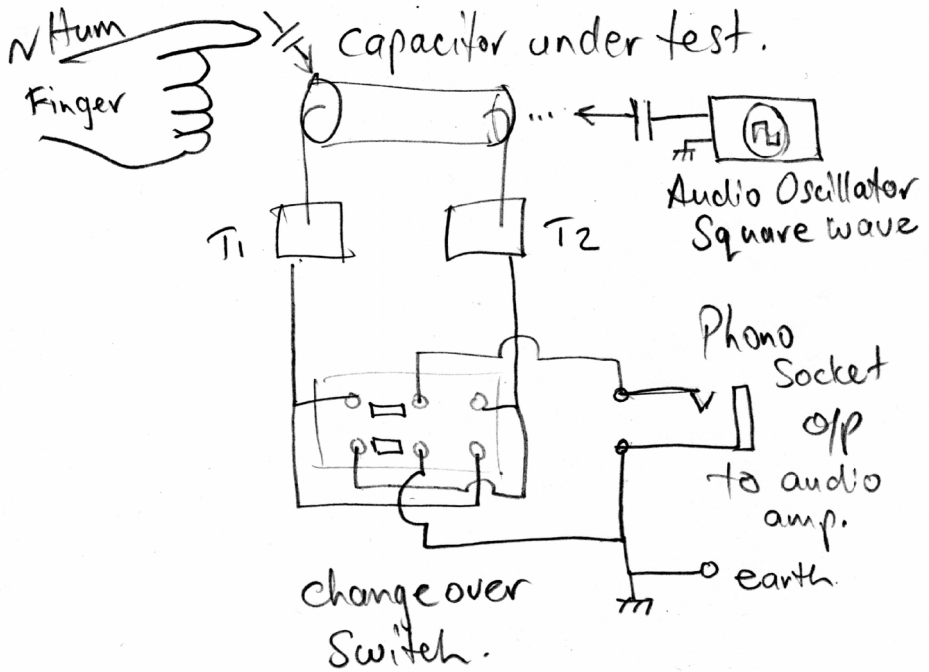 ~ Hum
Finger
capacitor under test.
Audio Oscillator
Square wave
T1
T2
Phono
Socket
o/p
to audio
amp.
earth
changeover
Switch.